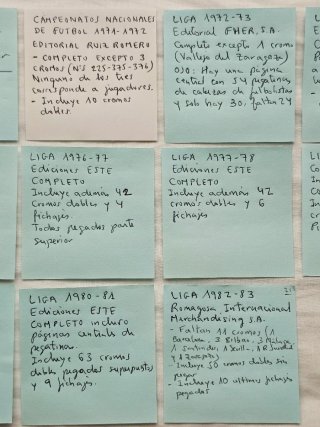 CAMPEONATOS NACIONALES
DE FUTBOL 1971-1972
EDITORIAL RUIZ ROMERO
- COMPLETO EXCEPTO 3
CROMOS (Nº's 225-375-376)
Ninguno de los tres
corresponde a jugadores.
- Incluye 10 cromos
dobles.
LIGA 1972-73
Editorial FHER, S.A.
Completo excepto 1 cromo
(Vallejo del Zaragoza)
OJO: Hay una página
central con 54 pegatinas
de cabezas de futbolistas
y solo hay 30, faltan 24
LIGA 1976-77
Ediciones ESTE
COMPLETO
Incluye además 42
cromos dobles y 4
fichajes.
Todos pegados parte
superior
LIGA 1977-78
Ediciones ESTE
COMPLETO
Incluye además 42
cromos dobles y 6
fichajes
LIGA 1980-81
Ediciones ESTE
COMPLETO incluso
páginas centrales de
pegatinas.
Incluye 63 cromos
dobles pegados superpuestos
y 9 fichajes.
LIGA 1982-83
Romagosa Internacional
Merchandising S.A.
- Faltan 11 cromos (1
Barcelona, 3 Bilbao, 3 Málaga
1 Santander, 1 Sevill.,
y 1 Zaragoza)
- Incluye 50 cromos dobles sin
pegar
- Incluye 10 últimos fichajes
pegados